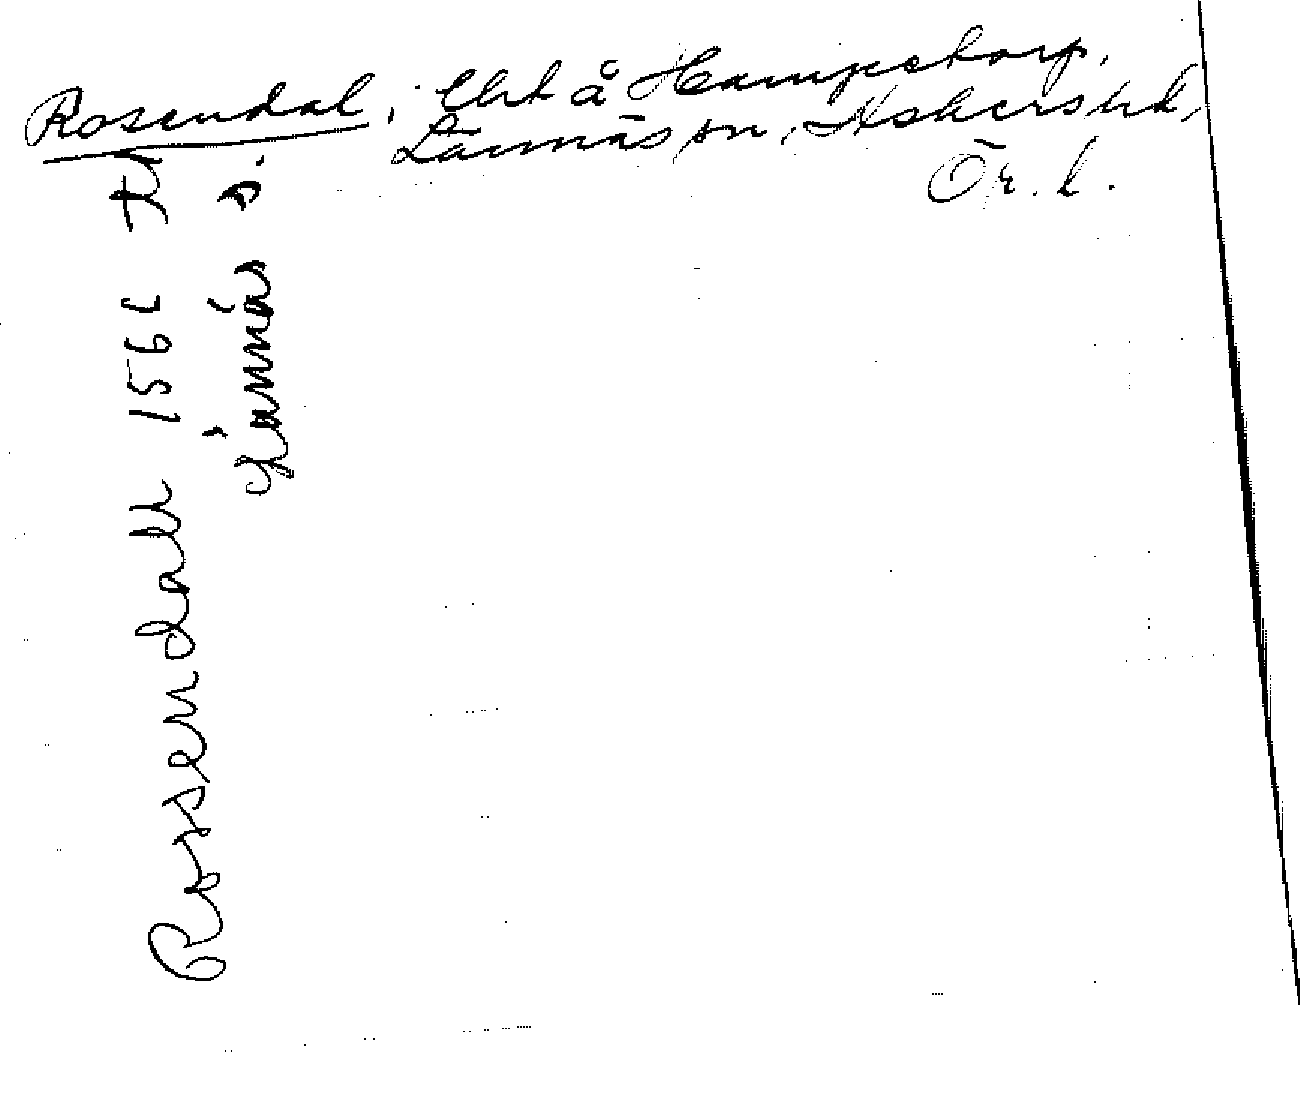 Rosendal, Ebt å Hampetorp,
Lännäs sn, Askers hd,
Ör. l.
Rossendall 1566
Lännäs s.